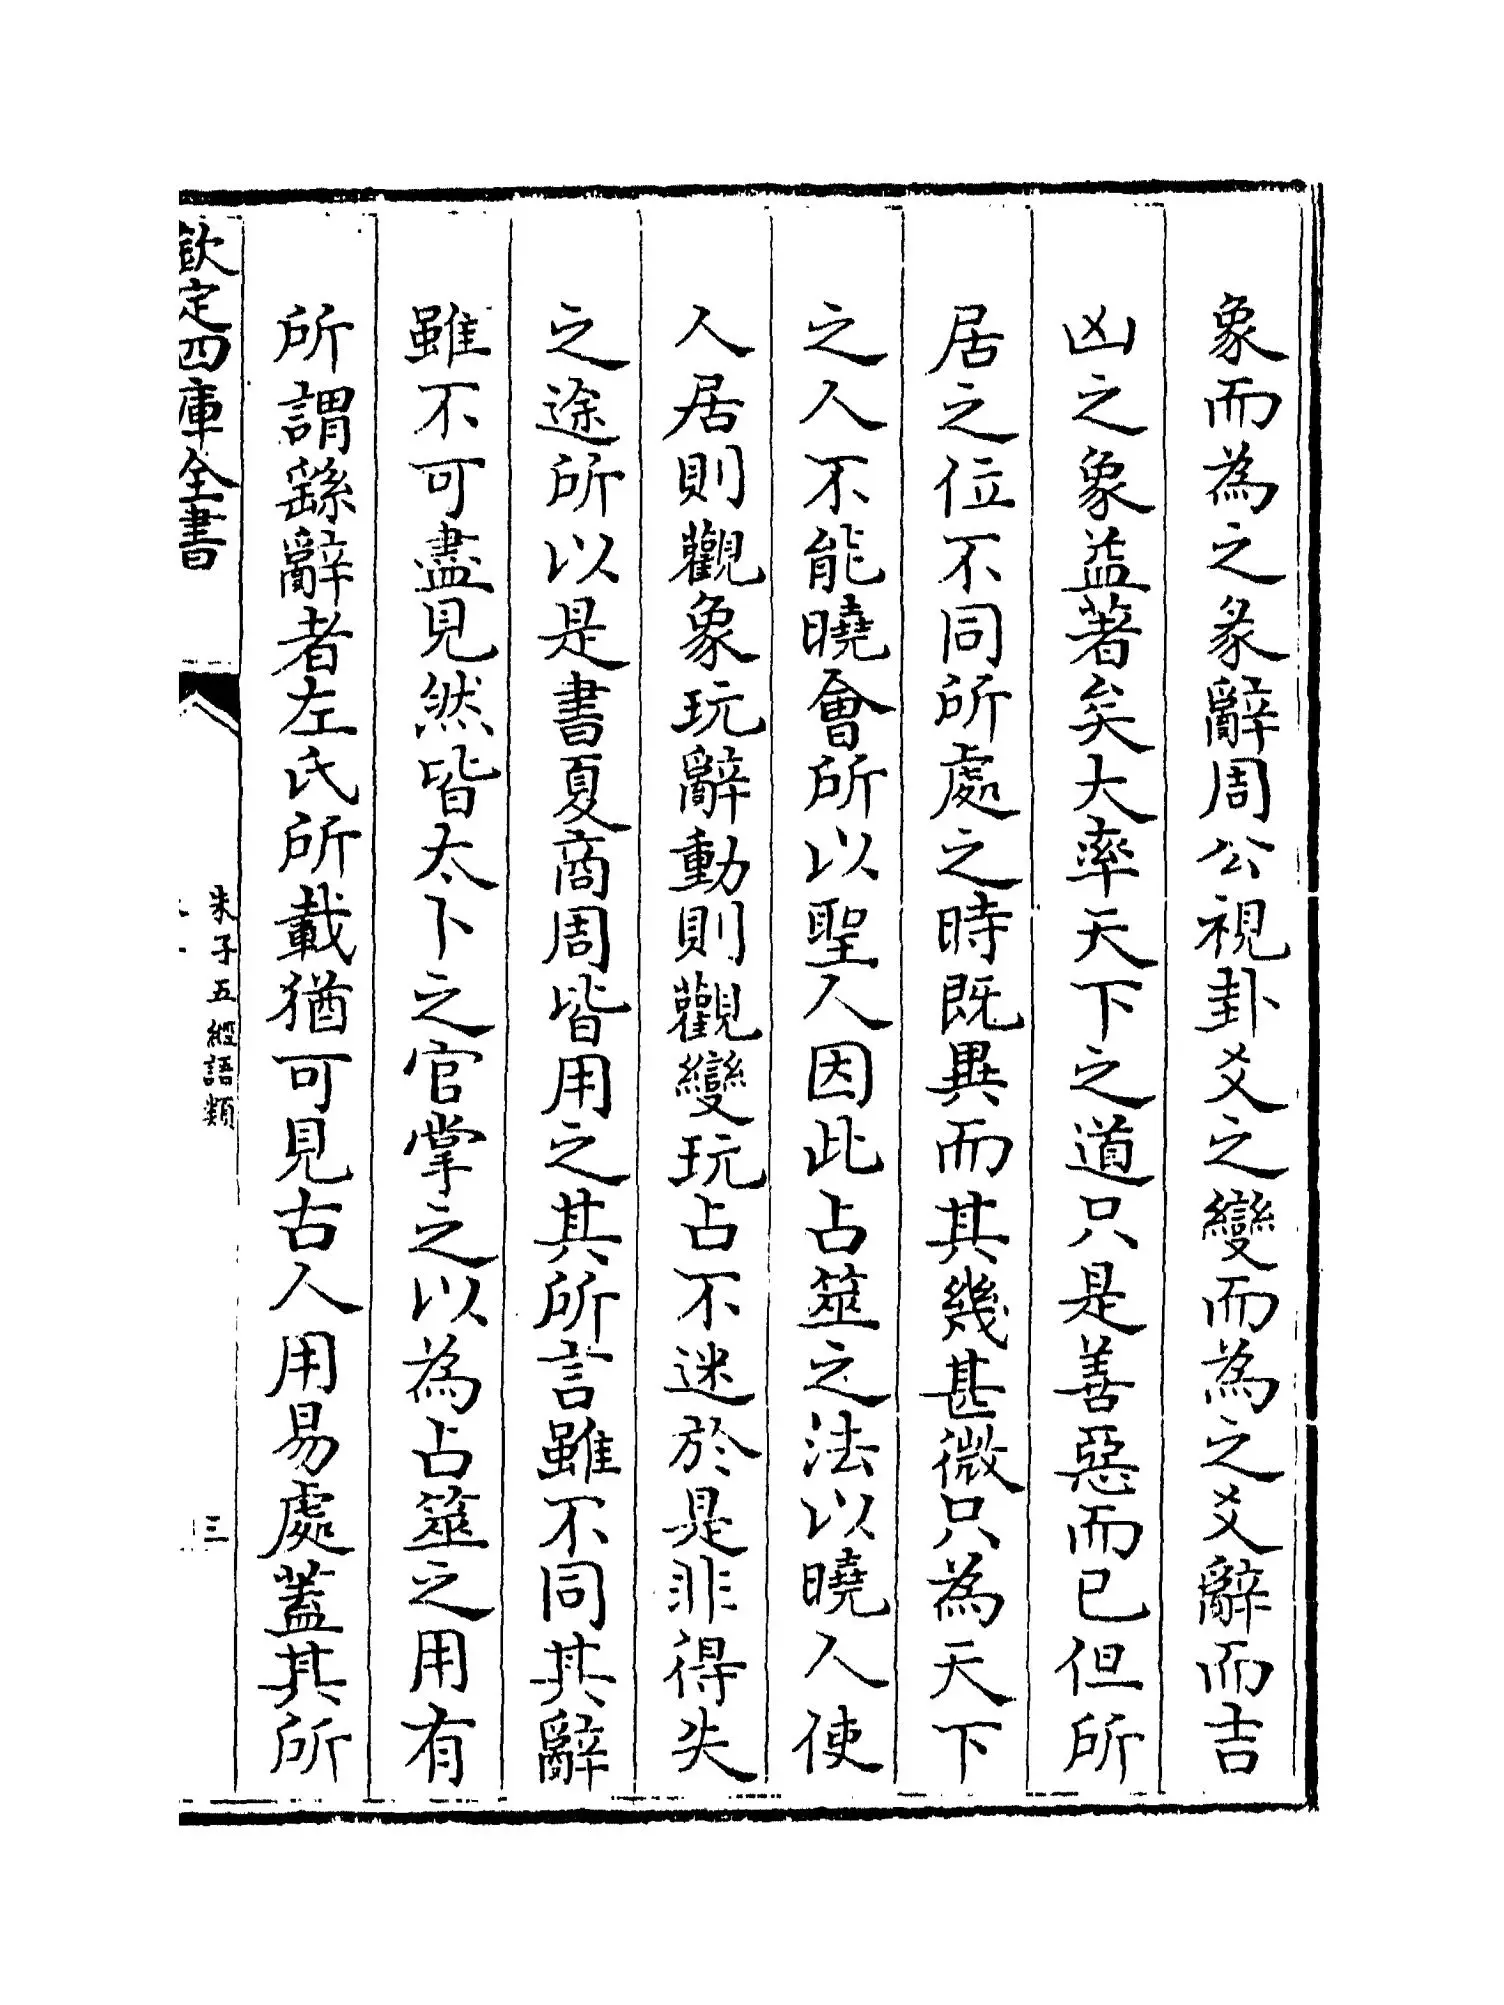 象而為之彖辭周公視卦爻之變而為之爻辭而吉
凶之象益著矣大率天下之道只是善惡而已但所
居之位不同所處之時既異而其幾甚微只為天下
之人不能曉會所以聖人因此占筮之法以曉人使
人居則觀象玩辭動則觀變玩占不迷於是非得失
之途所以是書夏商周皆用之其所言雖不同其辭
雖不可盡見然皆太卜之官掌之以為占筮之用有
所謂繇辭者左氏所載猶可見古人用易處蓋其所
欽定四庫全書
朱子五經語類
三